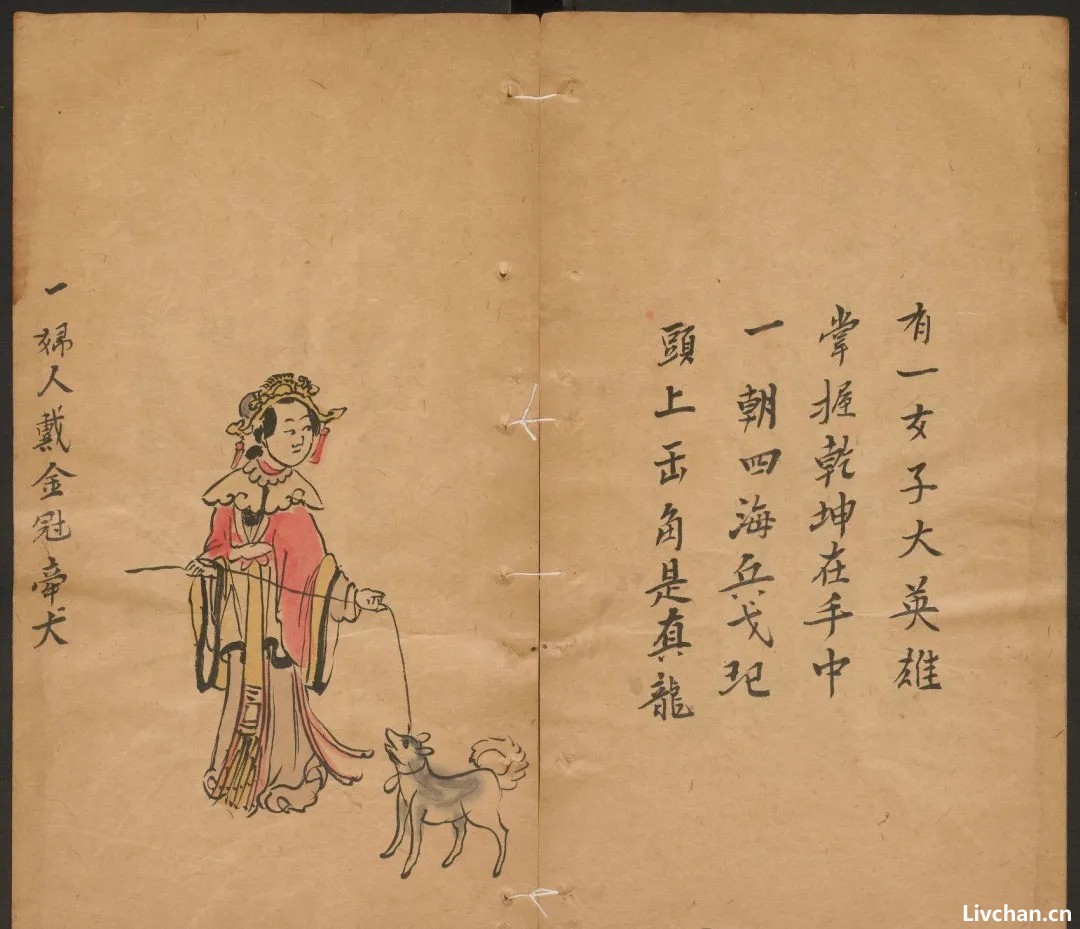 有一女子大英雄
掌握乾坤在手中
一朝四海兵戈
頭上缶角是真龍
一婦人戴金冠牽犬
Livchan.cn